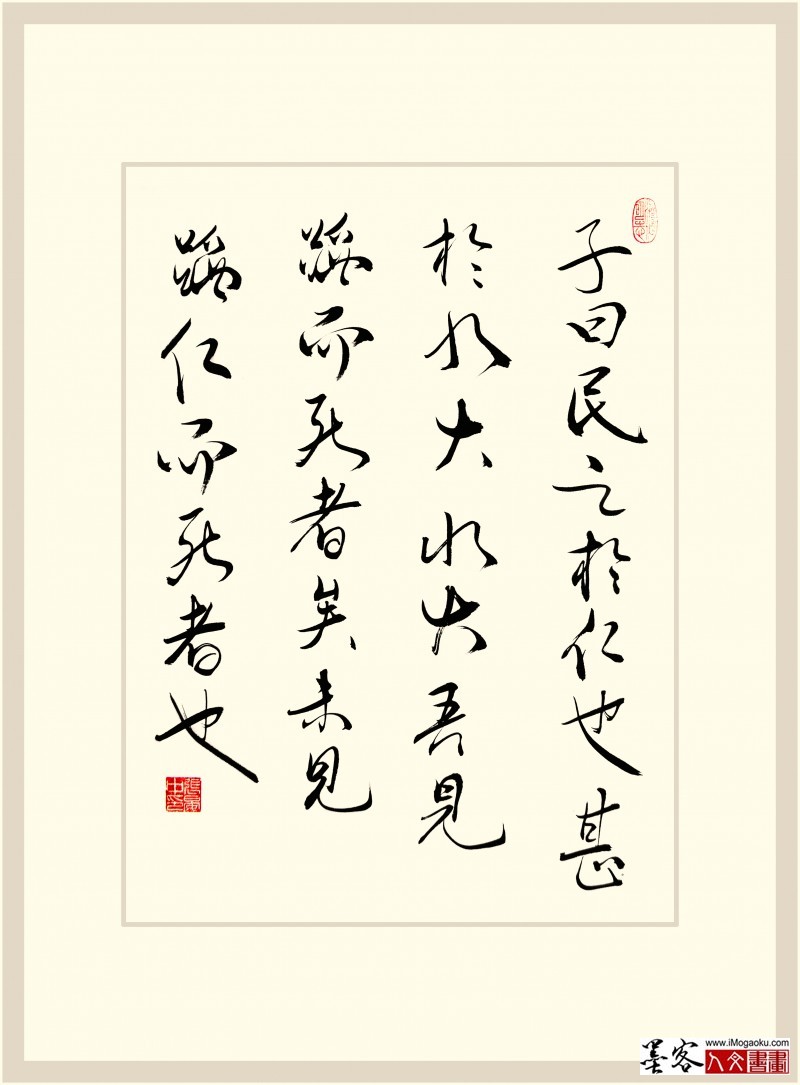 子曰民之於仁也甚
於水火水火吾見
蹈而死者矣未見
蹈仁而死者也
墨客
www.iMogaoku.com
人文書畫